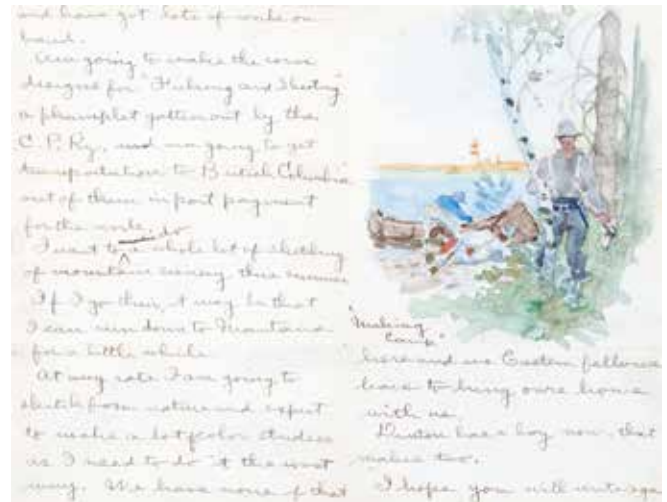 and have got lots of work on
hand.
Am going to make the cover
designs for "Fishing and Shooting"
a phamplet gotten out by the
C. P. Ry. and am going to get
transportation to British Columbia
out of them in part payment
for the work.
I want to do whole lot of sketching
of mountain scenery this summer
If I go there, it may be that
I can run down to Montana
for a little while
At any rate I am going to
sketch from nature and expect
to make a lot of color studies
as I need to do it the worst
way. We have none of that
"Making
Camp"
here and we Eastern fellows
have to bring ours home
with us
has a boy now, that
makes two.
I hope you will write